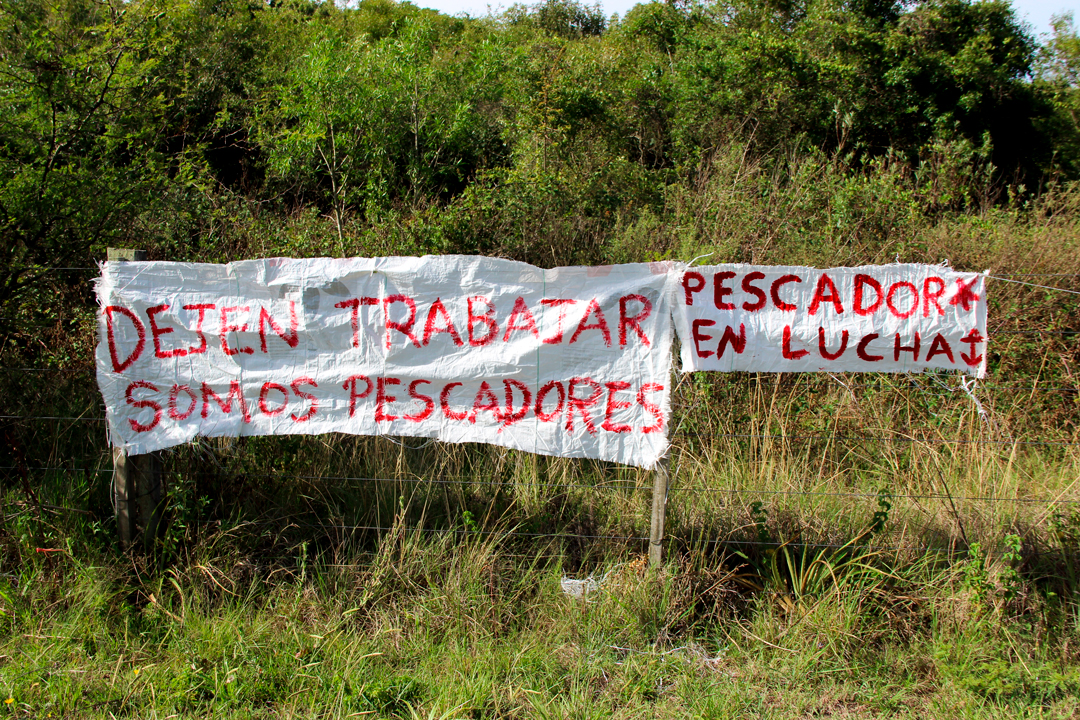 DEJEN TRABAJAR
SOMOS PESCADORES
PESCADORX
EN LUCHA